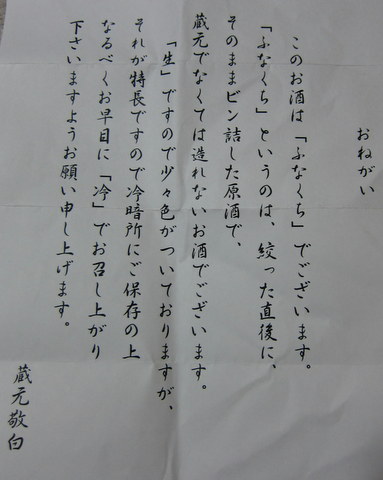 おねがい
このお酒は「ふなくち」でございます。
「ふなくち」というのは、絞った直後に、
そのままビン詰した原酒で、
蔵元でなくては造れないお酒でございます。
「生」ですので少々色がついておりますが、
それが特長ですので冷暗所にご保存の上
なるべくお早目に「冷」でお召し上がり
下さいますようお願い申し上げます。
蔵元敬白